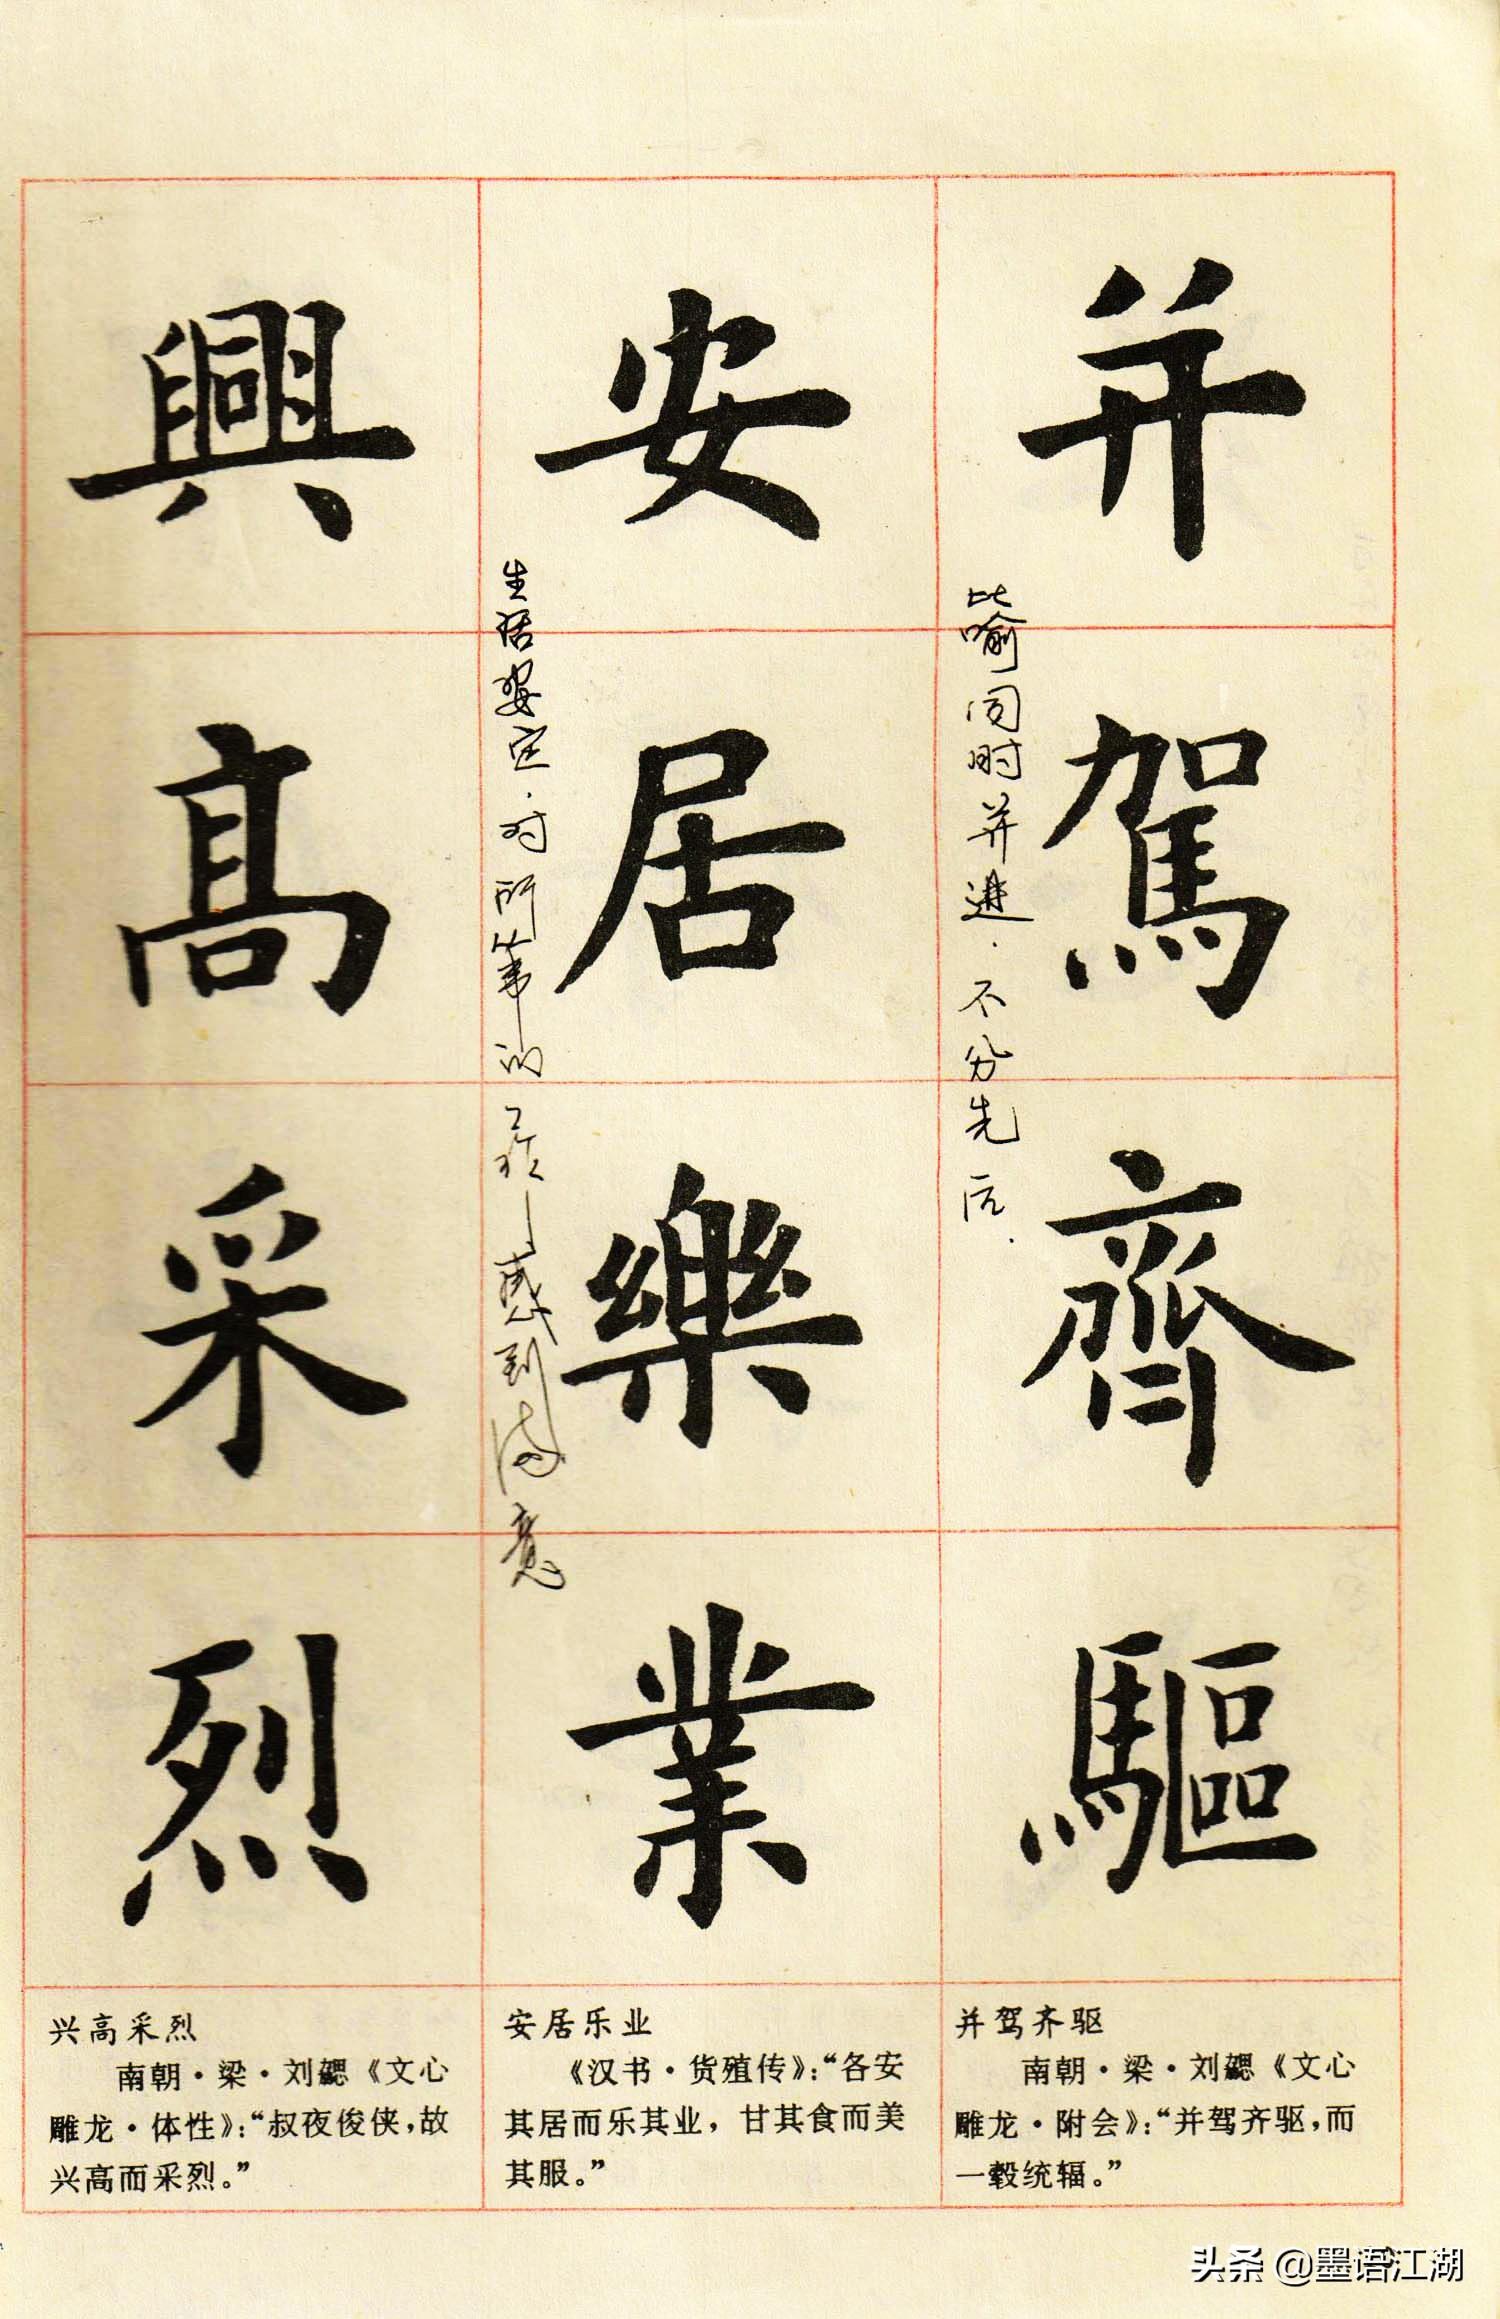 并駕齊驅
比喻同时并进.不分先后.
安居樂業
生活安定.对所从事的工作感到满意
興高采烈
并驾齐驱
南朝·梁·刘勰《文心
雕龙·附会》：“并驾齐驱，而
一毂统辐。”
安居乐业
《汉书·货殖传》：“各安
其居而乐其业，甘其食而美
其服。”
兴高采烈
南朝·梁·刘勰《文心
雕龙·体性》：“叔夜俊侠，故
兴高而采烈。”
头条 @墨语江湖